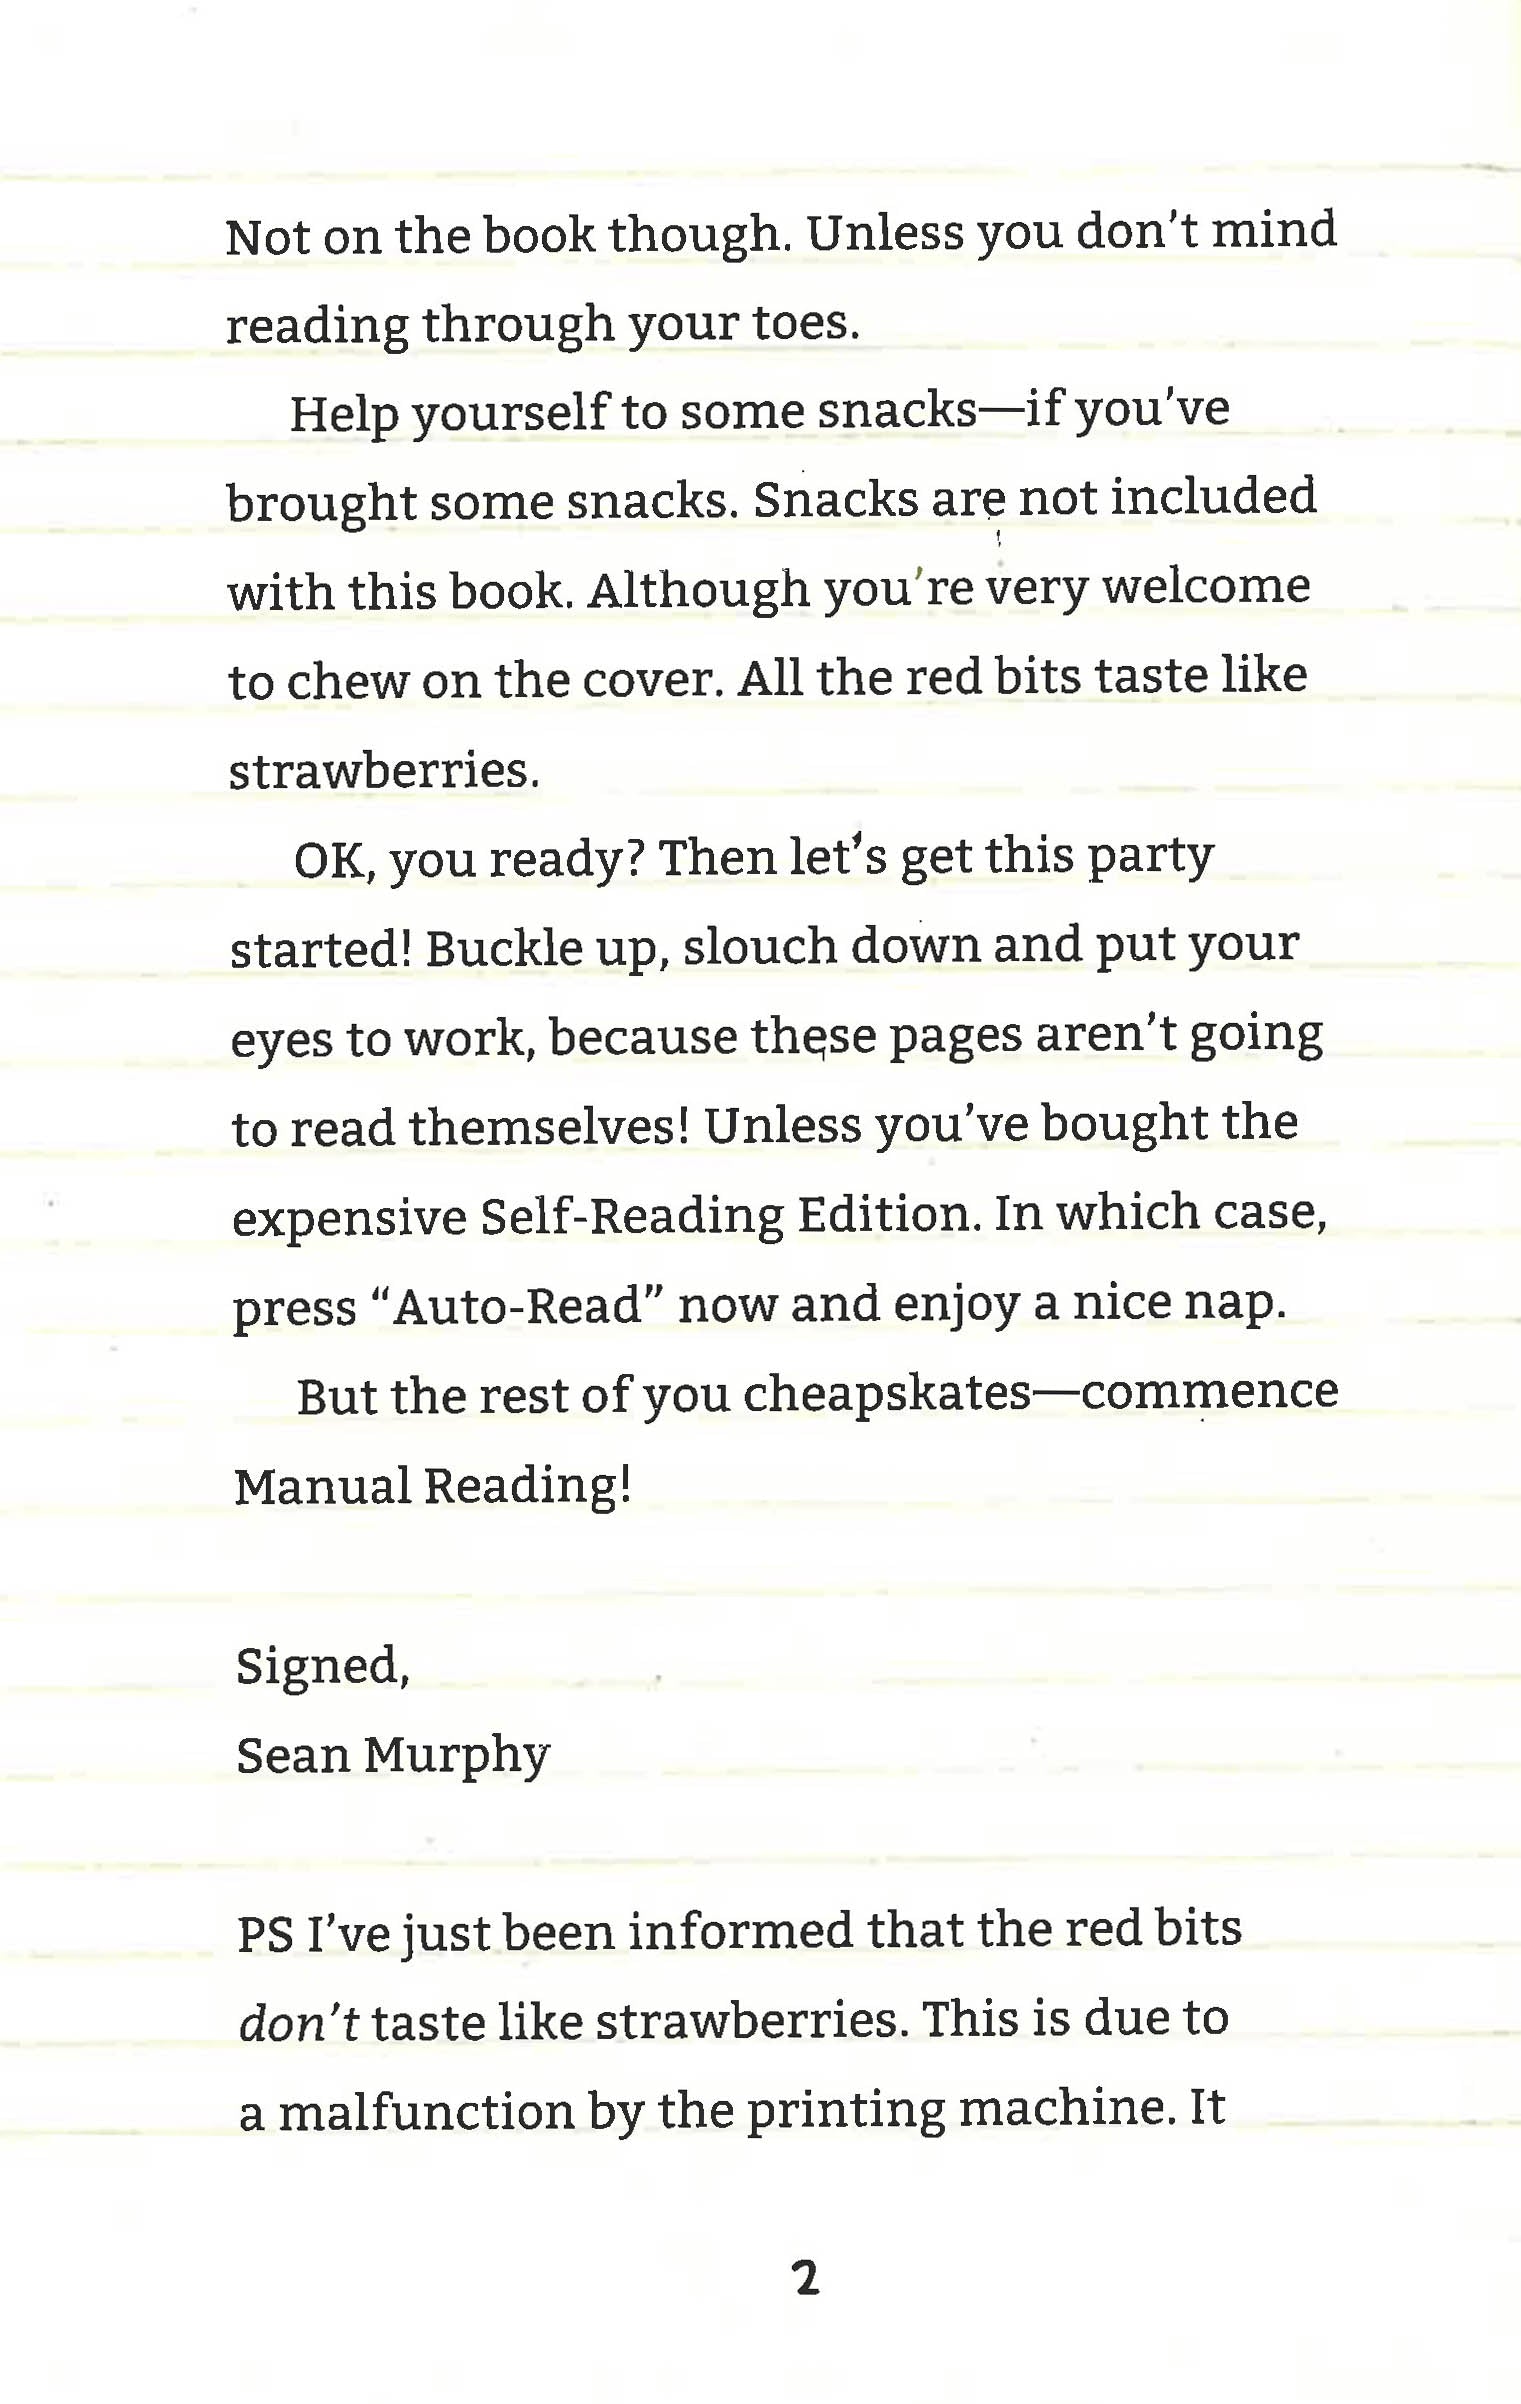 Not on the book though. Unless you don't mind
reading through your toes.
Help yourself to some snacks—if you've
brought some snacks. Snacks are not included
with this book. Although you're very welcome
to chew on the cover. All the red bits taste like
strawberries.
OK, you ready? Then let's get this party
started! Buckle up, slouch down and put your
eyes to work, because these pages aren't going
to read themselves! Unless you've bought the
expensive Self-Reading Edition. In which case,
press “Auto-Read” now and enjoy a nice nap.
But the rest of you cheapskates—commence
Manual Reading!
Signed,
Sean Murphy
PS I've just been informed that the red bits
don't taste like strawberries. This is due to
a malfunction by the printing machine. It
2